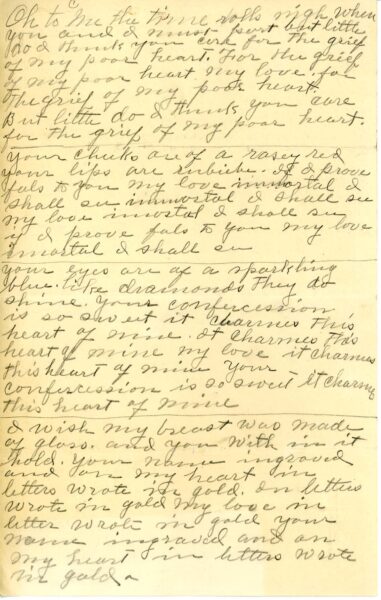 Oh to me the time rolls nigh when
you and I must part but little
do I think you care for the grief
of my poor heart. For the grief
of my poor heart my love. for
the grief of my poor heart.
But little do I think you care
for the grief of my poor heart.
your cheeks are of a rosey red
your lips are rubiebe. If I prove
fals to you my love immortal I
shall see immortal I shall see
my love imortal I shall see
if I prove fals to you my love
imortal I shall see
your eyes are of a sparkling
blue. like diamonds they do
shine. your confercession
is so sweet it charmes this
heart of mine. It charmes this
heart of mine my love it charmes
this heart of mine your
confercession is so sweet it charmes
this heart of mine
I wish my breast was made
of glass. and you with in it
hold. your name ingraved
and on my heart in
letters wrote in gold. in letters
wrote in gold my love in
letter wrote in gold your
name ingraved and on
my heart in letters wrote
in gold